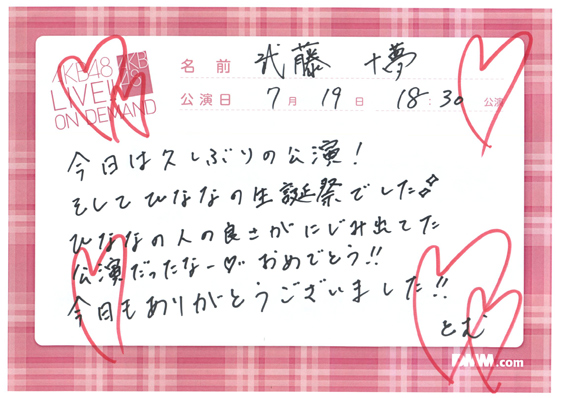 AKB48
LIVE!!
ON DEMAND
AKB
48
名前 武藤 十夢
公演日 7月 19日 18:30 公演
今日は久しぶりの公演!
そしてひななの生誕祭でした
ひななの人の良さがにじみ出てた
公演だったなー♡ おめでとう!!
今日もありがとうございました!!
とむ
DMM.com